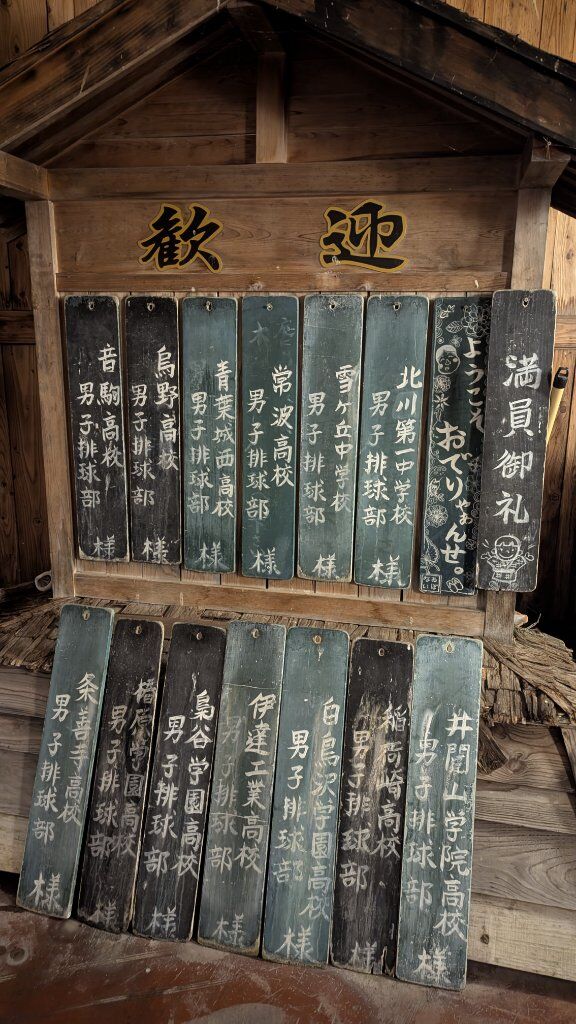 歓迎
満員御礼
ようこそ
おでりゃぁんせ。
北川第一中学校
男子排球部
様
雪ヶ丘中学校
男子排球部
様
常波高校
男子排球部
様
青葉城西高校
男子排球部
様
烏野高校
男子排球部
様
音駒高校
男子排球部
様
井闥山学院高校
男子排球部
様
稲荷崎高校
男子排球部
様
白鳥沢学園高校
男子排球部
様
伊達工業高校
男子排球部
様
梟谷学園高校
男子排球部
様
椿原学園高校
男子排球部
様
条善寺高校
男子排球部
様